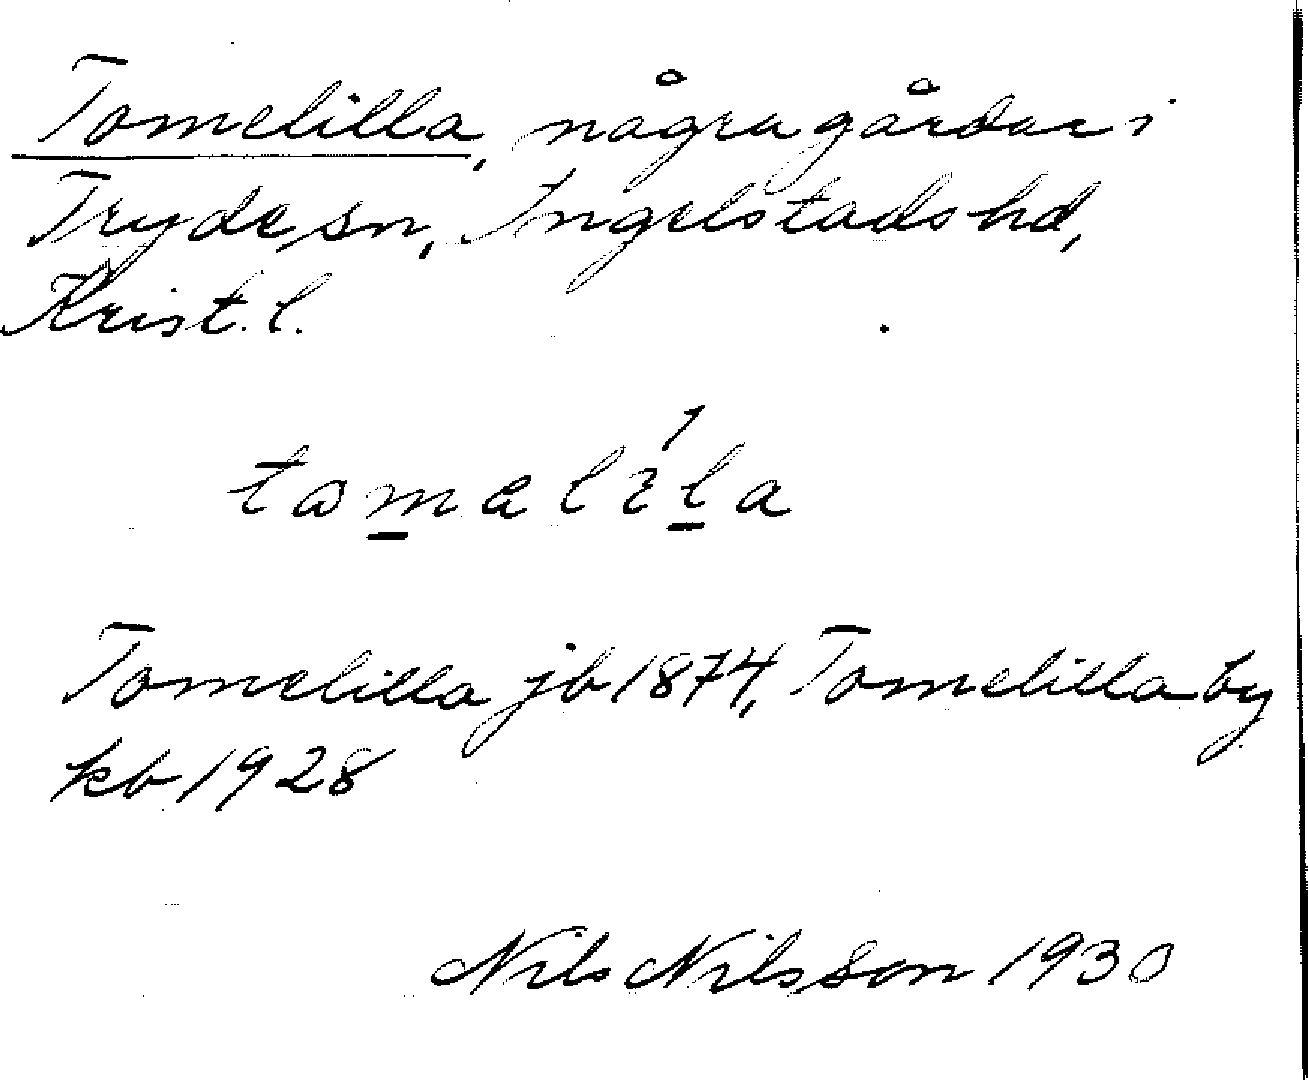 Tomelilla, några gårdar i
Tryde sn, Ingelstads hd,
Krist. l.
tomælı́la
Tomelilla jb 1874, Tomelilla by
kb 1928
Nils Nilsson 1930